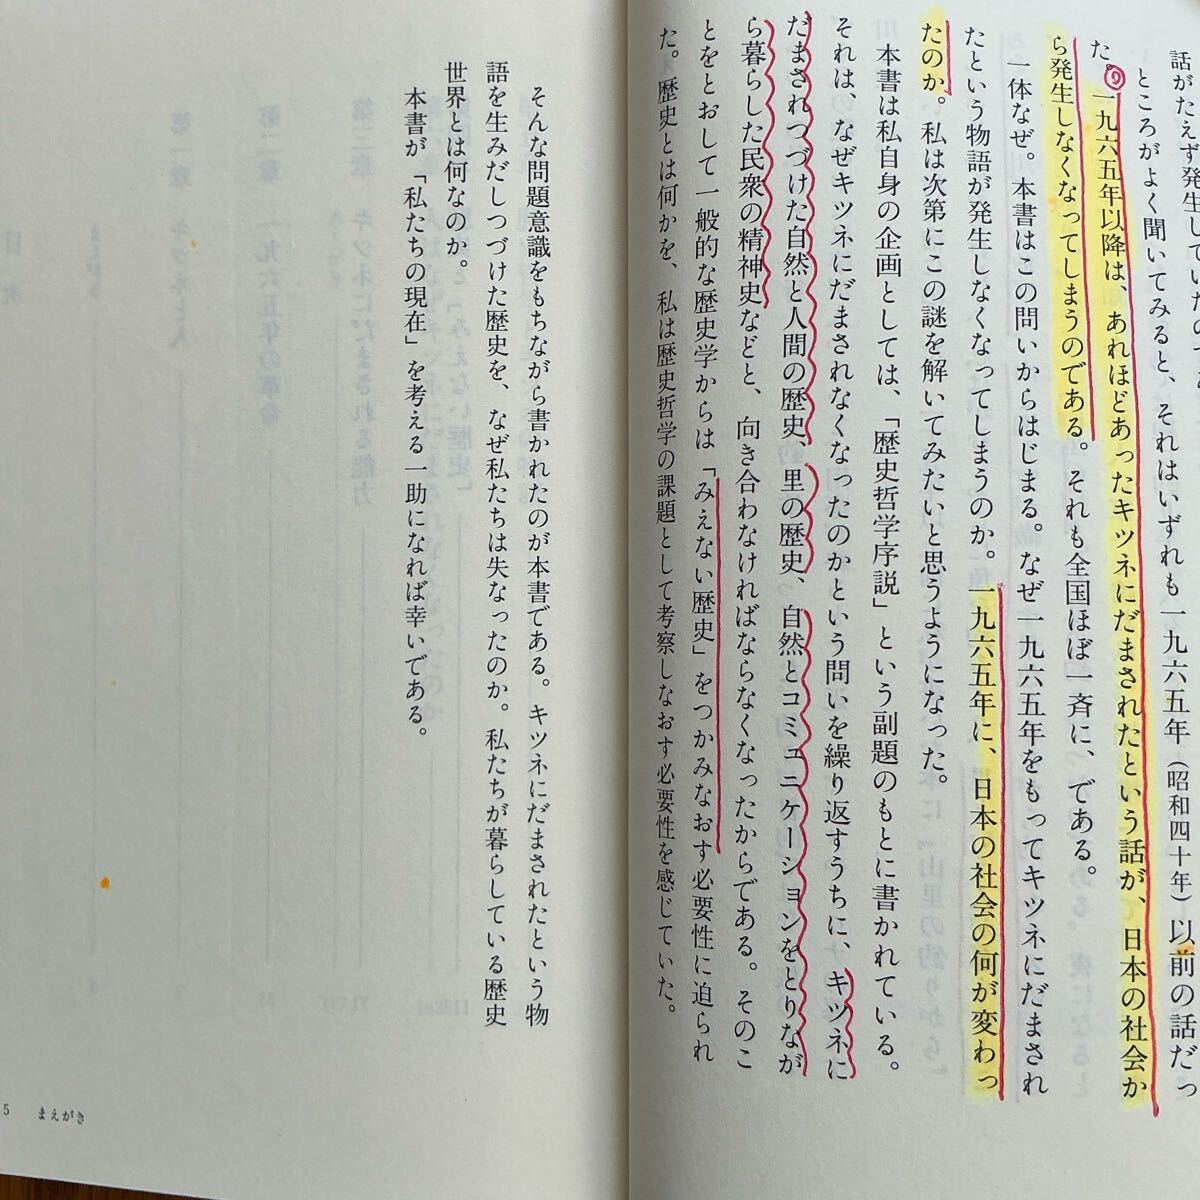 話がたえず発生していたので
ところがよく聞いてみると、それはいずれも一九六五年（昭和四十年）以前の話だっ
た。一九六五年以降は、あれほどあったキツネにだまされたという話が、日本の社会か
ら発生しなくなってしまうのである。それも全国ほぼ一斉に、である。
一体なぜ。本書はこの問いからはじまる。なぜ一九六五年をもってキツネにだまされ
たという物語が発生しなくなってしまうのか。一九六五年に、日本の社会の何が変わっ
たのか。私は次第にこの謎を解いてみたいと思うようになった。
本書は私自身の企画としては、「歴史哲学序説」という副題のもとに書かれている。
それは、なぜキツネにだまされなくなったのかという問いを繰り返すうちに、キツネに
だまされつづけた自然と人間の歴史、里の歴史、自然とコミュニケーションをとりなが
ら暮らした民衆の精神史などと、向き合わなければならなくなったからである。そのこ
とをとおして一般的な歴史学からは「みえない歴史」をつかみなおす必要性に迫られ
た。歴史とは何かを、私は歴史哲学の課題として考察しなおす必要性を感じていた。
そんな問題意識をもちながら書かれたのが本書である。キツネにだまされたという物
語を生みだしつづけた歴史を、なぜ私たちは失なったのか。私たちが暮らしている歴史
世界とは何なのか。
本書が「私たちの現在」を考える一助になれば幸いである。
5 まえがき